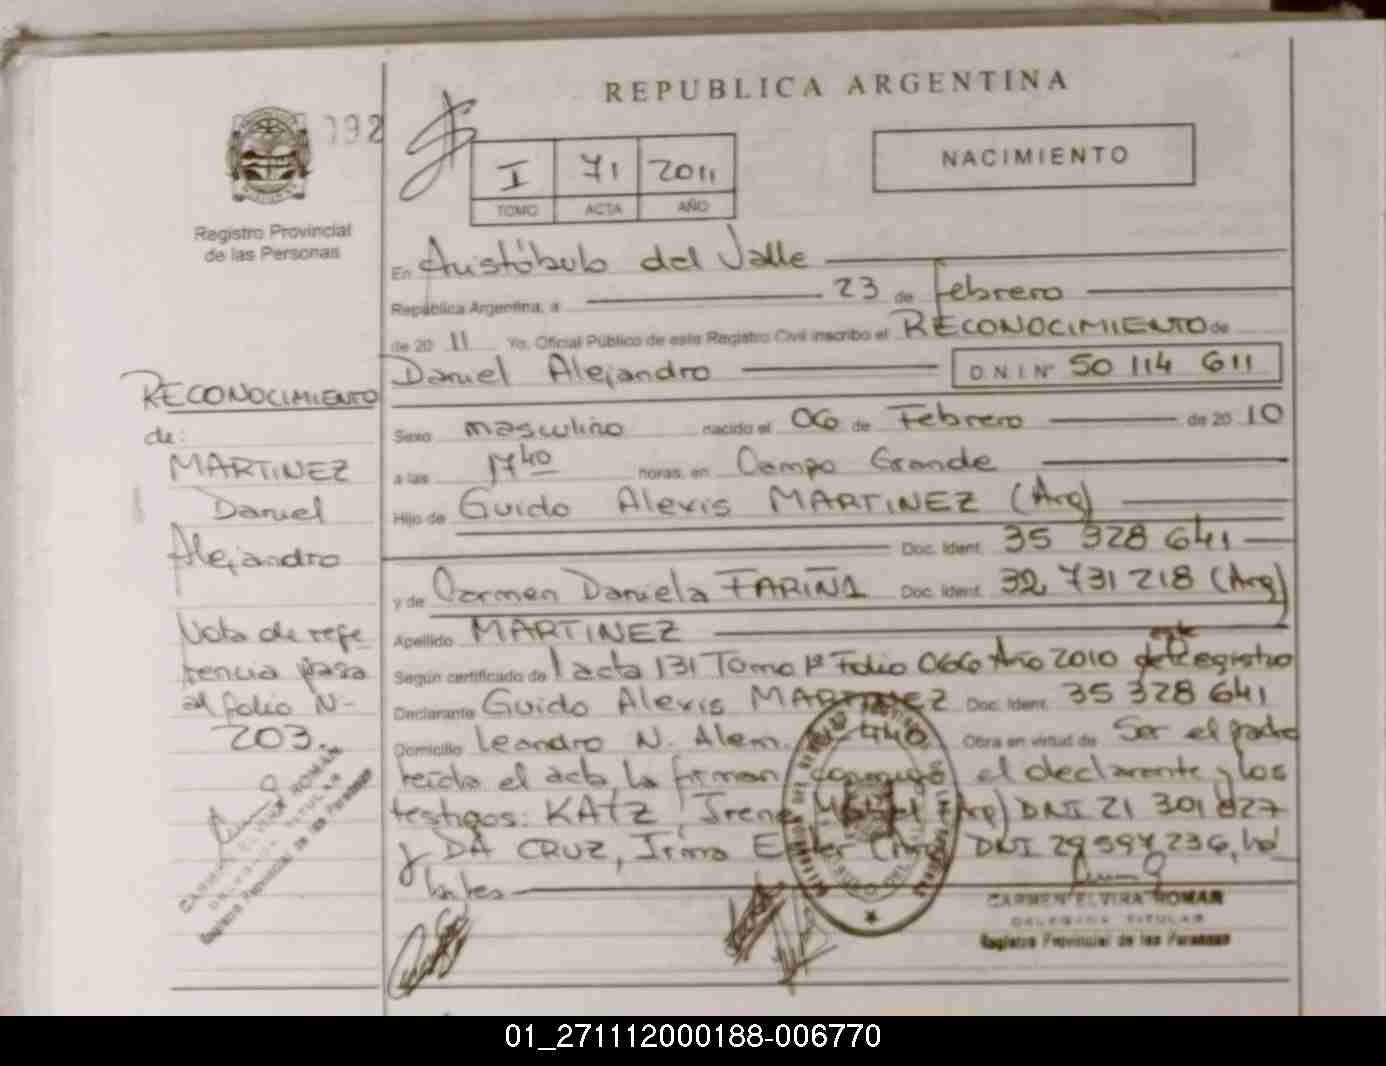 REPUBLICA ARGENTINA
192
NACIMIENTO
I 71 2011
TOMO ACTA AÑO
Registro Provincial
de las Personas
En Aristóbulo del Valle
República Argentina, a 23 de Febrero
de 2011 Yo, Oficial Público de este Registro Civil inscribo el RECONOCIMIENTO de
Daniel Alejandro D.N.I Nº 50 114 611
Sexo masculino nacido el 06 de Febrero de 2010
a las 17 40 horas, en Campo Grande
Hijo de Guido Alexis MARTINEZ (Arg)
Doc. Ident. 35 328 641
y de Carmen Daniela FARIÑA Doc. Ident. 32.731 218 (Arg)
Apellido MARTINEZ
Según certificado de acta 131 Tomo 1º Folio 066 Año 2010 de este Registro
Declarante Guido Alexis MARTINEZ Doc. Ident. 35 328 641
Domicilio Leandro N. Alem. 440 Obra en virtud de Ser el padre
leída el acta la firman conmigo el declarante y los
testigos: KATZ, Irene (Arg) DNI 21 301 827
y DA CRUZ, Irma Ester DNI 29 597 236, há
biles
CARMEN ELVIRA ROMAN
DELEGADA TITULAR
Registro Provincial de las Personas
RECONOCIMIENTO
de:
MARTINEZ
Daniel
Alejandro
Nota de refe
rencia pasa
al folio N-
203.
CARMEN ELVIRA ROMAN
DELEGADA TITULAR
Registro Provincial de las Personas
01_271112000188-006770